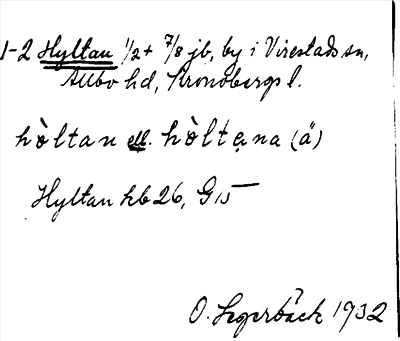 1-2 Hyltan 1/2 + 7/8 jb, by i Virestads sn,
Allbo hd, Kronobergs l.
hòltan ell. hòltęna (ä)
Hyltan hb 26, G 15
O. Segerbäck 1932